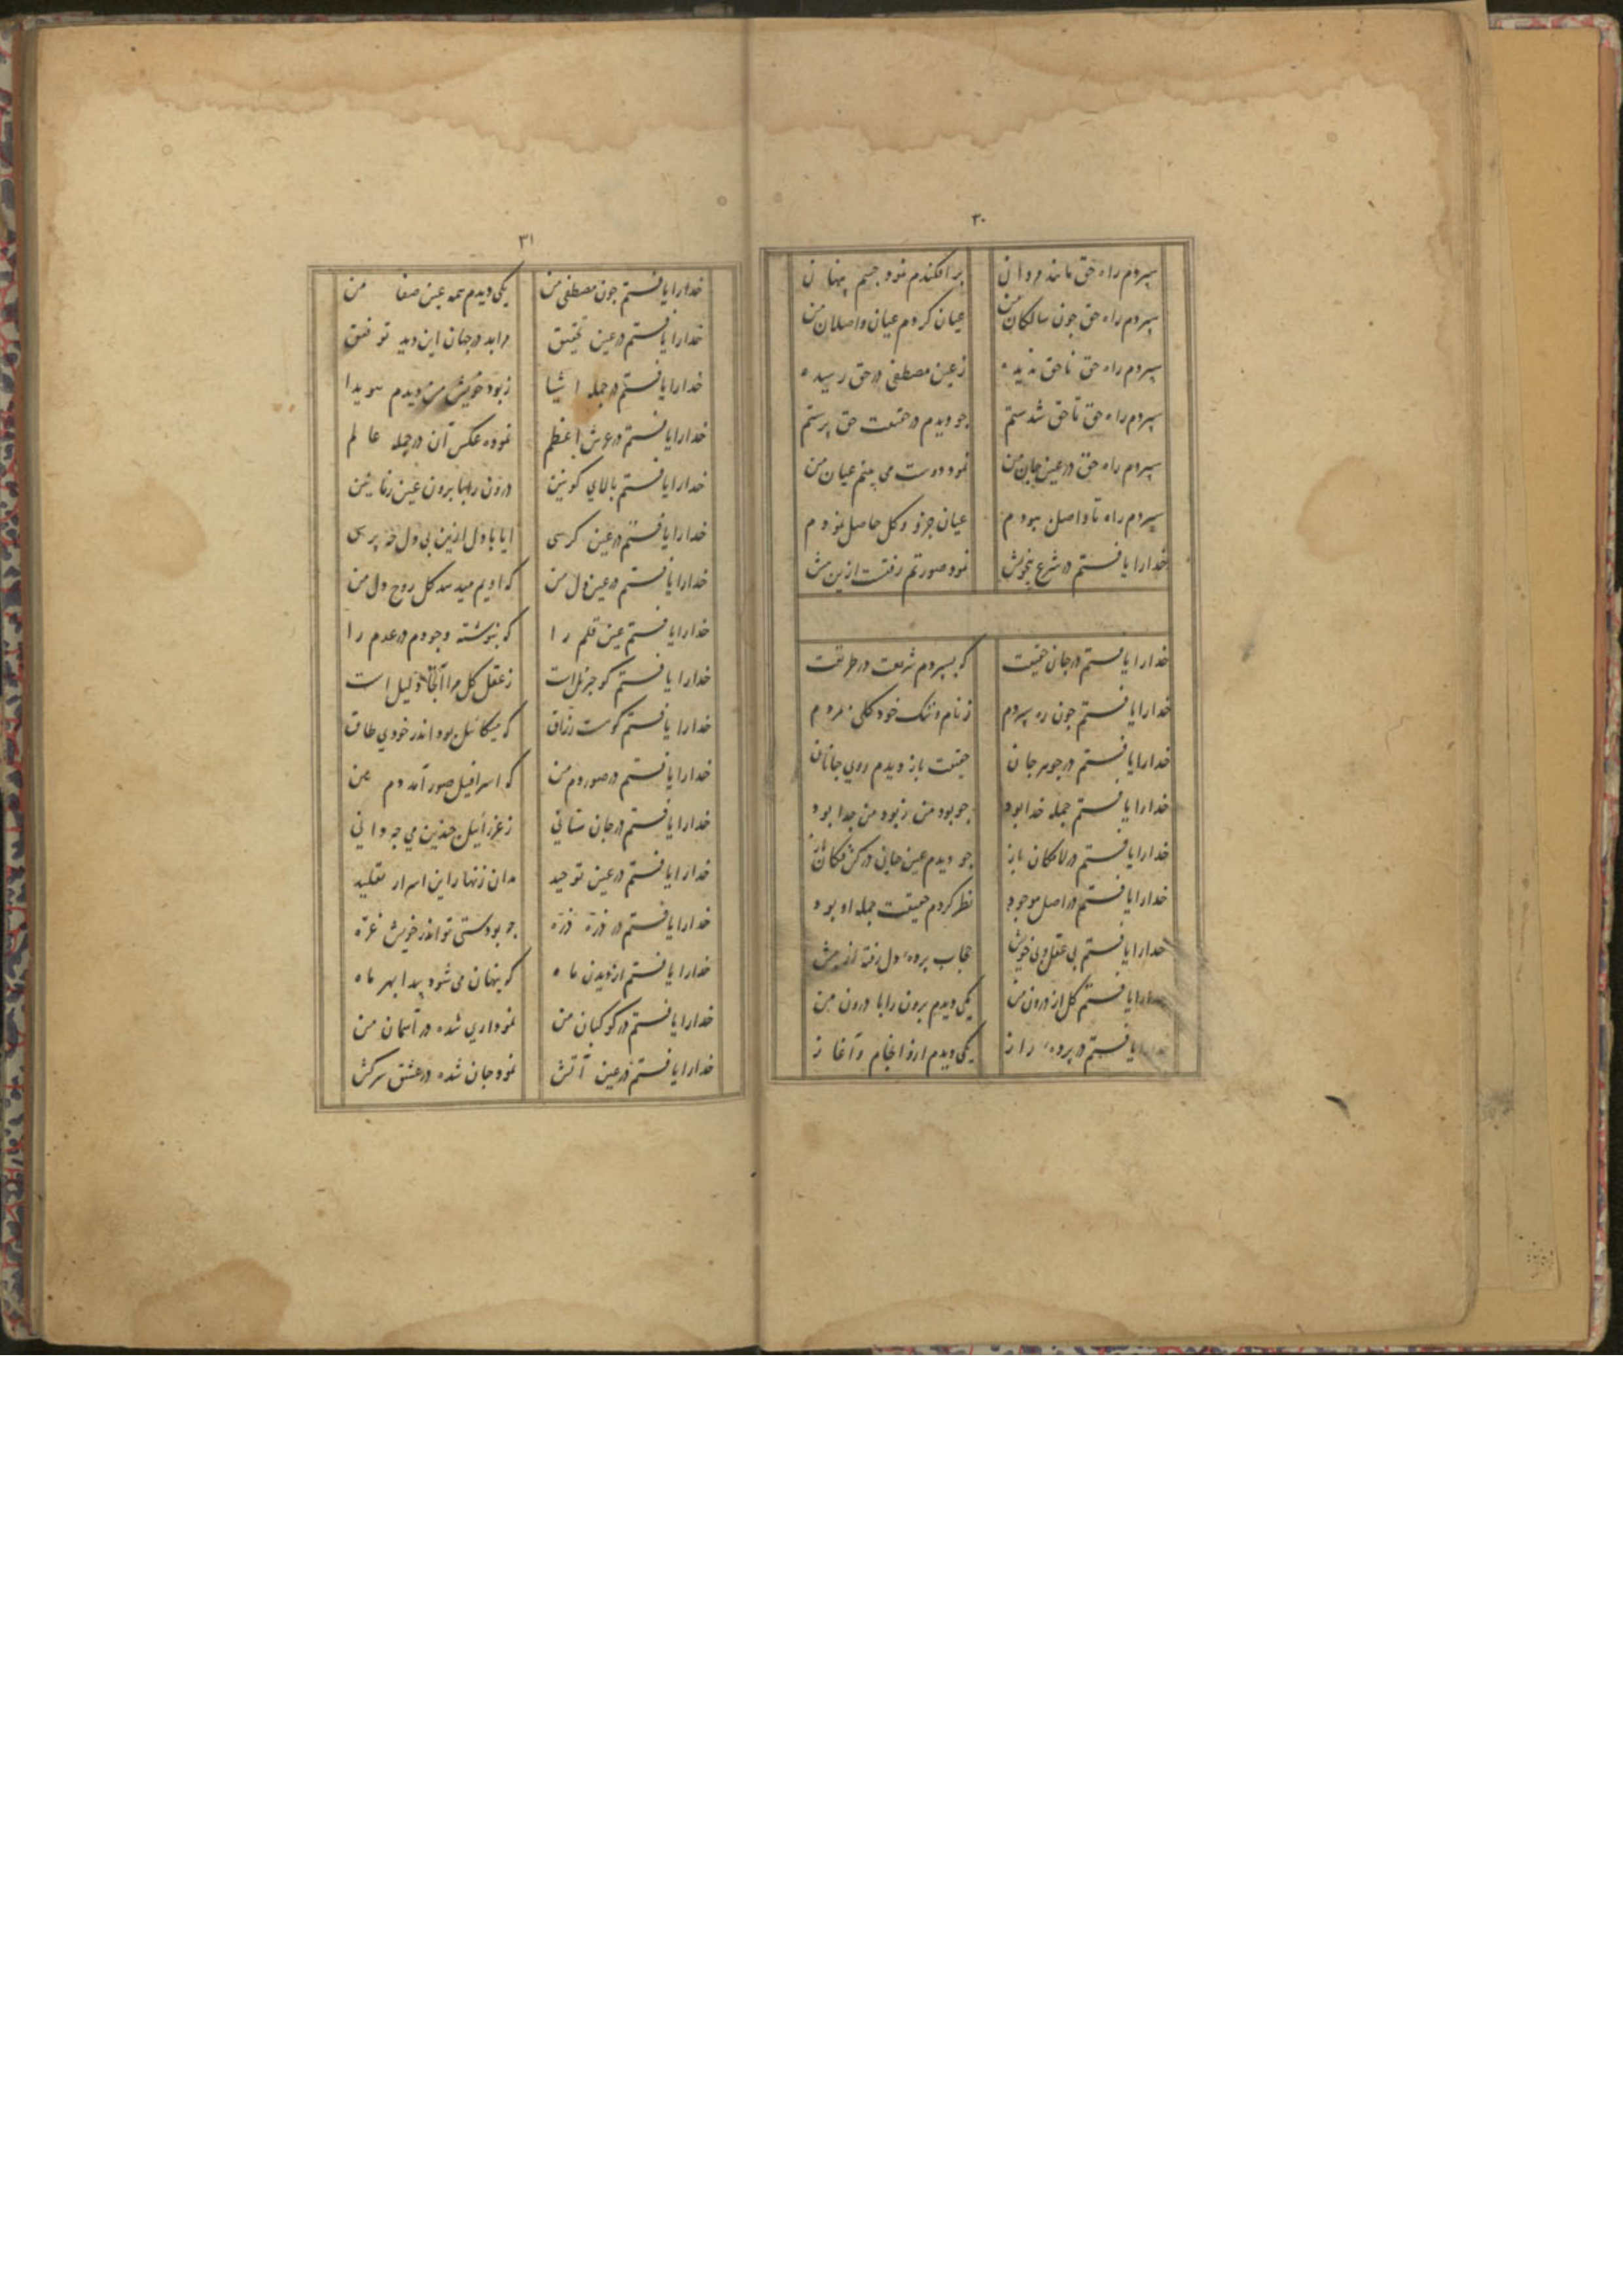 ۳۰
سپردم راه حق مانند مردان برافکندم نمود جسم پنهان
سپردم راه حق چون سالکان من عیان کردم عیان واصلان من
سپردم راه حق ناحق ندیده زعین مصطفی در حق رسیده
سپردم راه حق تا حق شدستم چو دیدم در حقیقت حق پرستم
سپردم راه حق در عین جان من نمود دوست می بینم عیان من
سپردم راه تا واصل ببودم عیان جزو و کل حاصل نمودم
خدا را یافتم در شرع بیخویش نمود صورتم رفتست از پیش
خدا را یافتم در جان حقیقت که بسپردم شریعت در طریقت
خدا را یافتم چون ره سپردم ز نام و ننک خود کلی بمردم
خدا را یافتم در جوهر جان حقیقت باز دیدم روی جانان
خدا را یافتم جمله خدا بود چو بود من ز بود من جدا بود
خدا را یافتم در لامکان باز چو دیدم عین جانی در مکان باز
خدا را یافتم در اصل موجود نظر کردم حقیقت جمله او بود
خدا را یافتم بی عقل و بی خویش حجاب پردهٔ دل رفته از پیش
خدا را یافتم کل از درون من یکی دیدم برون را با درون من
یافتم در پردهٔ راز یکی دیدم ازو انجام و آغاز
۳۱
خدا را یافتم چون مصطفی من یکی دیدم همه عین صفا من
خدا را یافتم در عین تحقیق مرا بد در جهان این دید توفیق
خدا را یافتم در جمله اشیا ز بود خویش من دیدم هویدا
خدا را یافتم در عرش اعظم نموده عکس آن در جمله عالم
خدا را یافتم بالای کونین درون را با برون عین
خدا را یافتم در عین کرسی ایا با دل ازین بی دل چه پرسی
خدا را یافتم در عین دل من که او بد کل روح دل من
خدا را یافتم عین قلم را که بنوشته وجودم در عدم را
خدا را یافتم کو جبرئیل است ز عقل کل مرا آنجا دلیل است
خدا را یافتم کوست رزاق که میکائیل بود اندر خودی طاق
خدا را یافتم در صور دم من که اسرافیل صور آمد دم من
خدا را یافتم در جان ستانی ز عزرائیل چندین می چه دانی
خدا را یافتم در عین توحید مدان زنهار این اسرار تقلید
خدا را یافتم در ذرّه ذرّه چو بودستی تو اندر خویش غرّه
خدا را یافتم از دیدن ماه که پنهان می شود پیدا بهر ماه
خدا را یافتم در کوکبان من نموداری شده در آسمان من
خدا را یافتم در عین آتش نمود جان شده در عشق سرکش